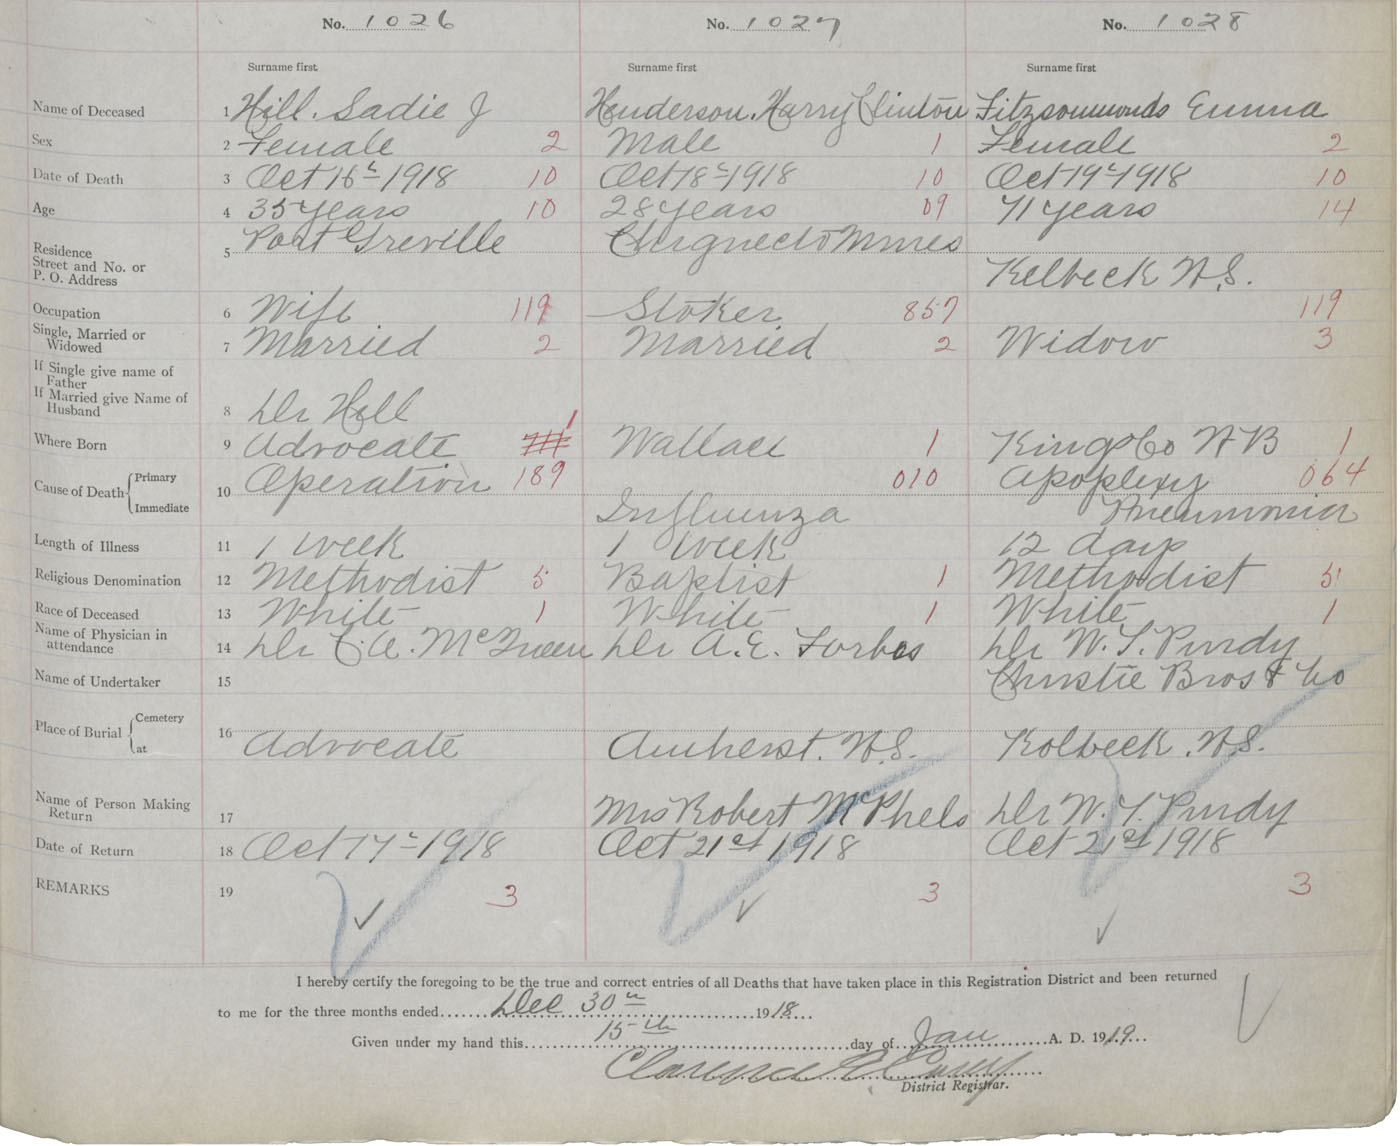 No. 1026 No. 1027 No. 1028
Surname first Surname first Surname first
Name of Deceased 1 Hill. Sadie J Henderson. Harry Clinton Fitzsommonds Emma
Sex 2 Female 2 Male 1 Female 2
Date of Death 3 Oct 16th 1918 10 Oct 18th 1918 10 Oct 19th 1918 10
Age 4 35 years 10 28 years 09 71 years 14
Residence
Street and No. or
P. O. Address
5 Port Greville Chignecto Mines
Kelbeck N.S.
Occupation 6 Wife 119 Stoker 857 119
Single, Married or
Widowed
7 Married 2 Married 2 Widow 3
If Single give name of
Father
If Married give Name of
Husband
8 Dr Hill
Where Born 9 Advocate 1 Wallace 1 Kings Co N B 1
Cause of Death Primary
Immediate
10 Operation 189 010 Apoplexy 064
Influenza Pneumonia
Length of Illness 11 1 week 1 week 12 days
Religious Denomination 12 Methodist 5 Baptist 1 Methodist 5
Race of Deceased 13 White 1 White 1 White 1
Name of Physician in
attendance
14 Dr C. A. McQueen Dr A. E. Forbes Dr W. T. Purdy
Name of Undertaker 15 Christie Bros & Co
Place of Burial Cemetery
at
16 Advocate Amherst. N.S. Kolbeck. N.S.
Name of Person Making
Return
17 Mrs Robert McPhels Dr W. T. Purdy
Date of Return 18 Oct 17th 1918 Oct 21st 1918 Oct 21st 1918
REMARKS 19 3 3 3
I hereby certify the foregoing to be the true and correct entries of all Deaths that have taken place in this Registration District and been returned
to me for the three months ended Dec 30th 1918
Given under my hand this 15th day of Jan A. D. 1919
Clarence
District Registrar.